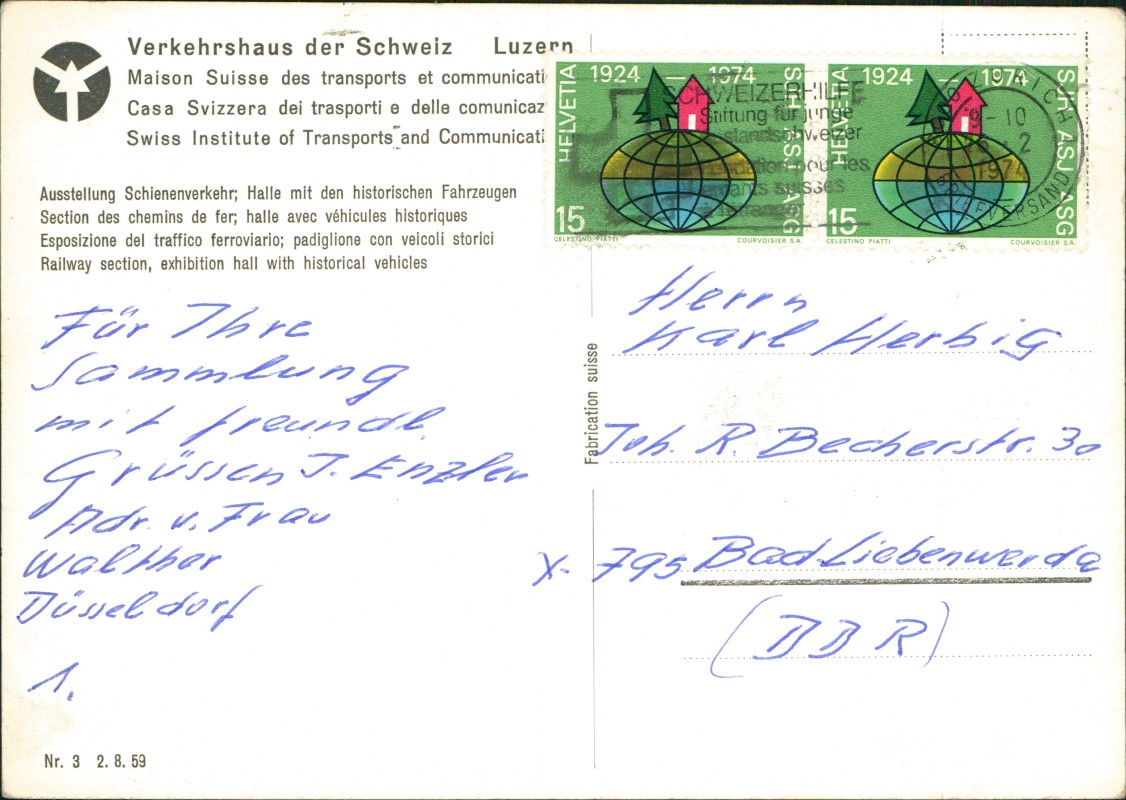 Verkehrshaus der Schweiz Luzern
Maison Suisse des transports et communicati
Casa Svizzera dei trasporti e delle comunicaz
Swiss Institute of Transports and Communicati
Ausstellung Schienenverkehr; Halle mit den historischen Fahrzeugen
Section des chemins de fer; halle avec véhicules historiques
Esposizione del traffico ferroviario; padiglione con veicoli storici
Railway section, exhibition hall with historical vehicles
HELVETIA
1924 — 1974
SJH ASJ ASG
15
CELESTINO PIATTI
COURVOISIER S.A.
HELVETIA
1924 — 1974
SJH ASJ ASG
15
CELESTINO PIATTI
COURVOISIER S.A.
SCHWEIZERHILFE
Stiftung für junge
Auslandschweizer
Fondation pour les
enfants suisses
ZÜRICH
9-10
2
1974
BRIEFVERSAND
Für Ihre
Sammlung
mit freundl.
Grüssen J. Enzler
Adr. v. Frau
Walther
Düsseldorf
1.
Fabrication suisse
Herrn
Karl Herbig
Joh. R. Becherstr. 30
X- 795 Bad Liebenwerda
(DDR)
Nr. 3 2. 8. 59